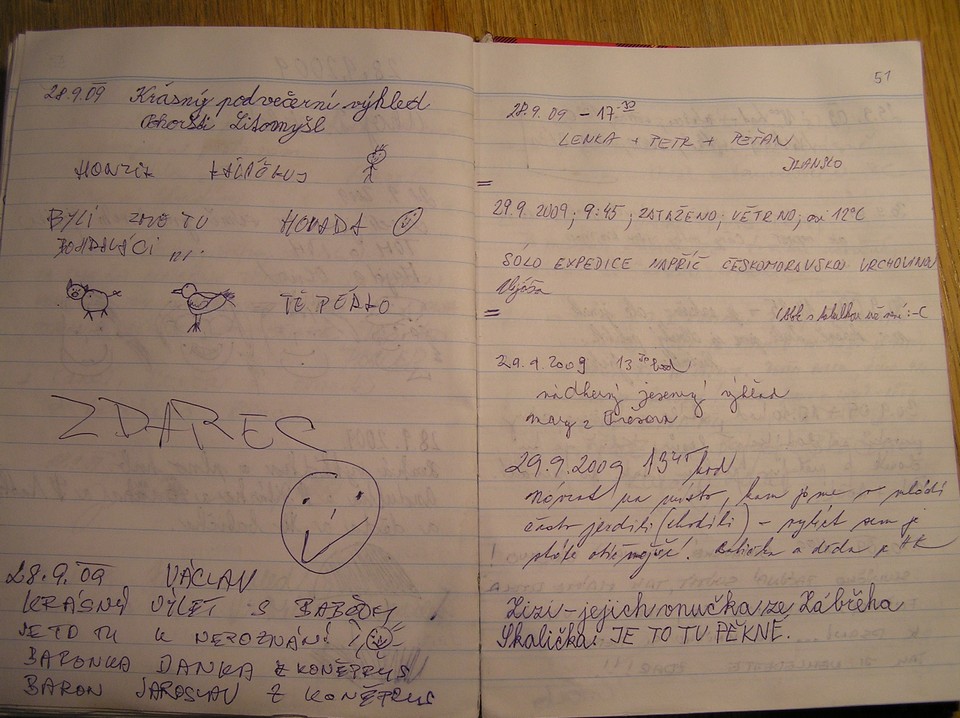 28.9.09 Krásný podvečerní výhled
Litomyšl
HONZÍK
BYLI SME TU HOVADA
TĚ PÉRO
ZDAREC
28.9.09 VÁCLAV
KRÁSNÝ VÝLET S
JE TO TU K NEROZNÁNÍ!
BARONKA DANKA Z KONĚPRUS
BARON JAROSLAV Z KONĚPRUS
51
28.9.09 - 17.30
LENKA + PETR + PEŤAN
29.9.2009, 9:45, ZATAŽENO, VĚTRNO, 12°C
SÓLO EXPEDICE NAPŘÍČ ČESKOMORAVSKOU VRCHOVINOU
29.9.2009 13 hod
nádherný jesenný výhľad
z Prešova
29.9.2009 13 45 hod
Návrat na místo, kam jsme v mládí
často jezdili (chodili) – výlet sem je
stále. Babička a děda z HK
Lízi – jejich vnučka ze Zábřeha
Skalička. JE TO TU PĚKNÉ.